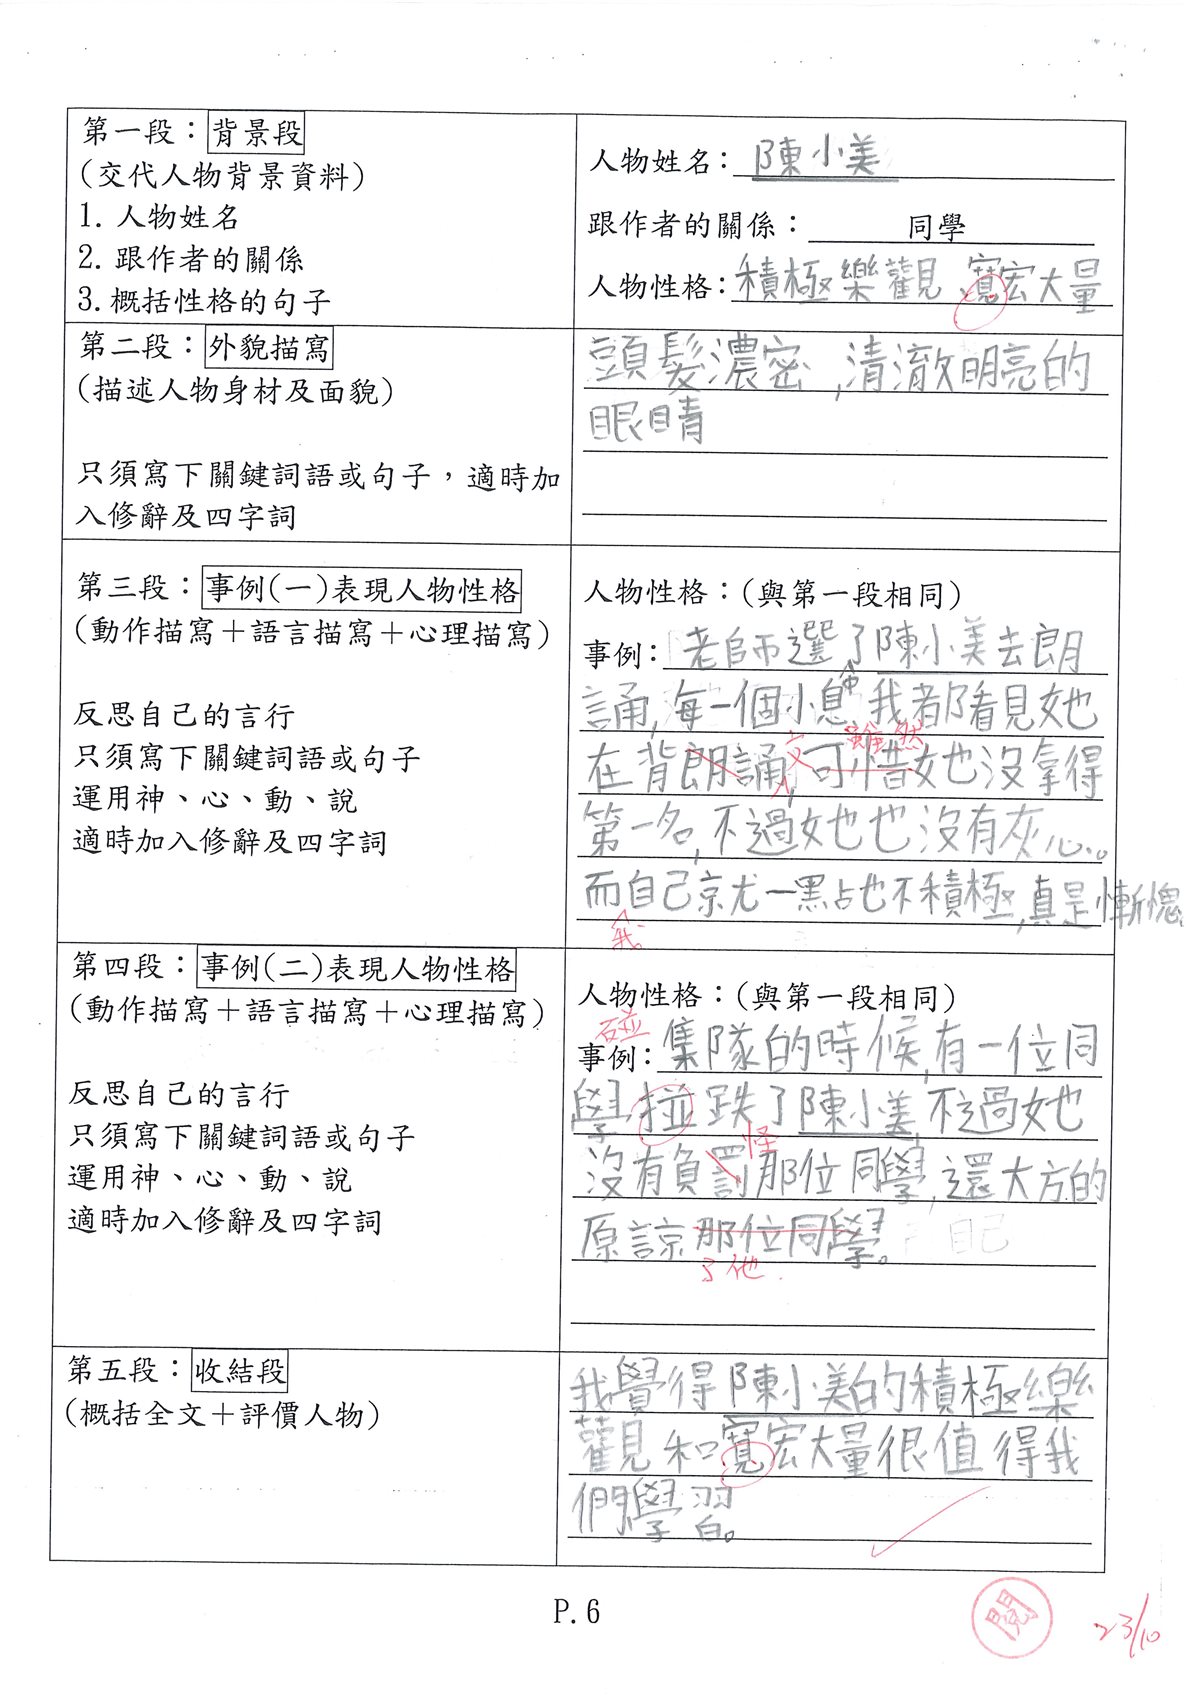 第一段：背景段
(交代人物背景資料)
1. 人物姓名
2. 跟作者的關係
3. 概括性格的句子
人物姓名：陳小美
跟作者的關係：同學
人物性格：積極樂觀、寬宏大量
第二段：外貌描寫
(描述人物身材及面貌)
只須寫下關鍵詞語或句子，適時加
入修辭及四字詞
頭髮濃密，清澈明亮的
眼睛
第三段：事例(一)表現人物性格
(動作描寫＋語言描寫＋心理描寫)
反思自己的言行
只須寫下關鍵詞語或句子
運用神、心、動、說
適時加入修辭及四字詞
人物性格：(與第一段相同)
事例：老師選了陳小美去朗
誦，每一個小息我都看見她也
在背朗誦，可惜她也沒拿得
文 雖然
第一名，不過她也沒有灰心。
而自己京尤一點也不積極，真是慚愧。
我
第四段：事例(二)表現人物性格
(動作描寫＋語言描寫＋心理描寫)
反思自己的言行
只須寫下關鍵詞語或句子
運用神、心、動、說
適時加入修辭及四字詞
人物性格：(與第一段相同)
碰
事例：集隊的時候，有一位同
學掽跌了陳小美，不過她也
怪
沒有負罰那位同學，還大方的
原諒那位同學。自己
了他
第五段：收結段
(概括全文＋評價人物)
我覺得陳小美的積極樂
觀和寬宏大量很值得我
們學習。
P.6
閱
23/10